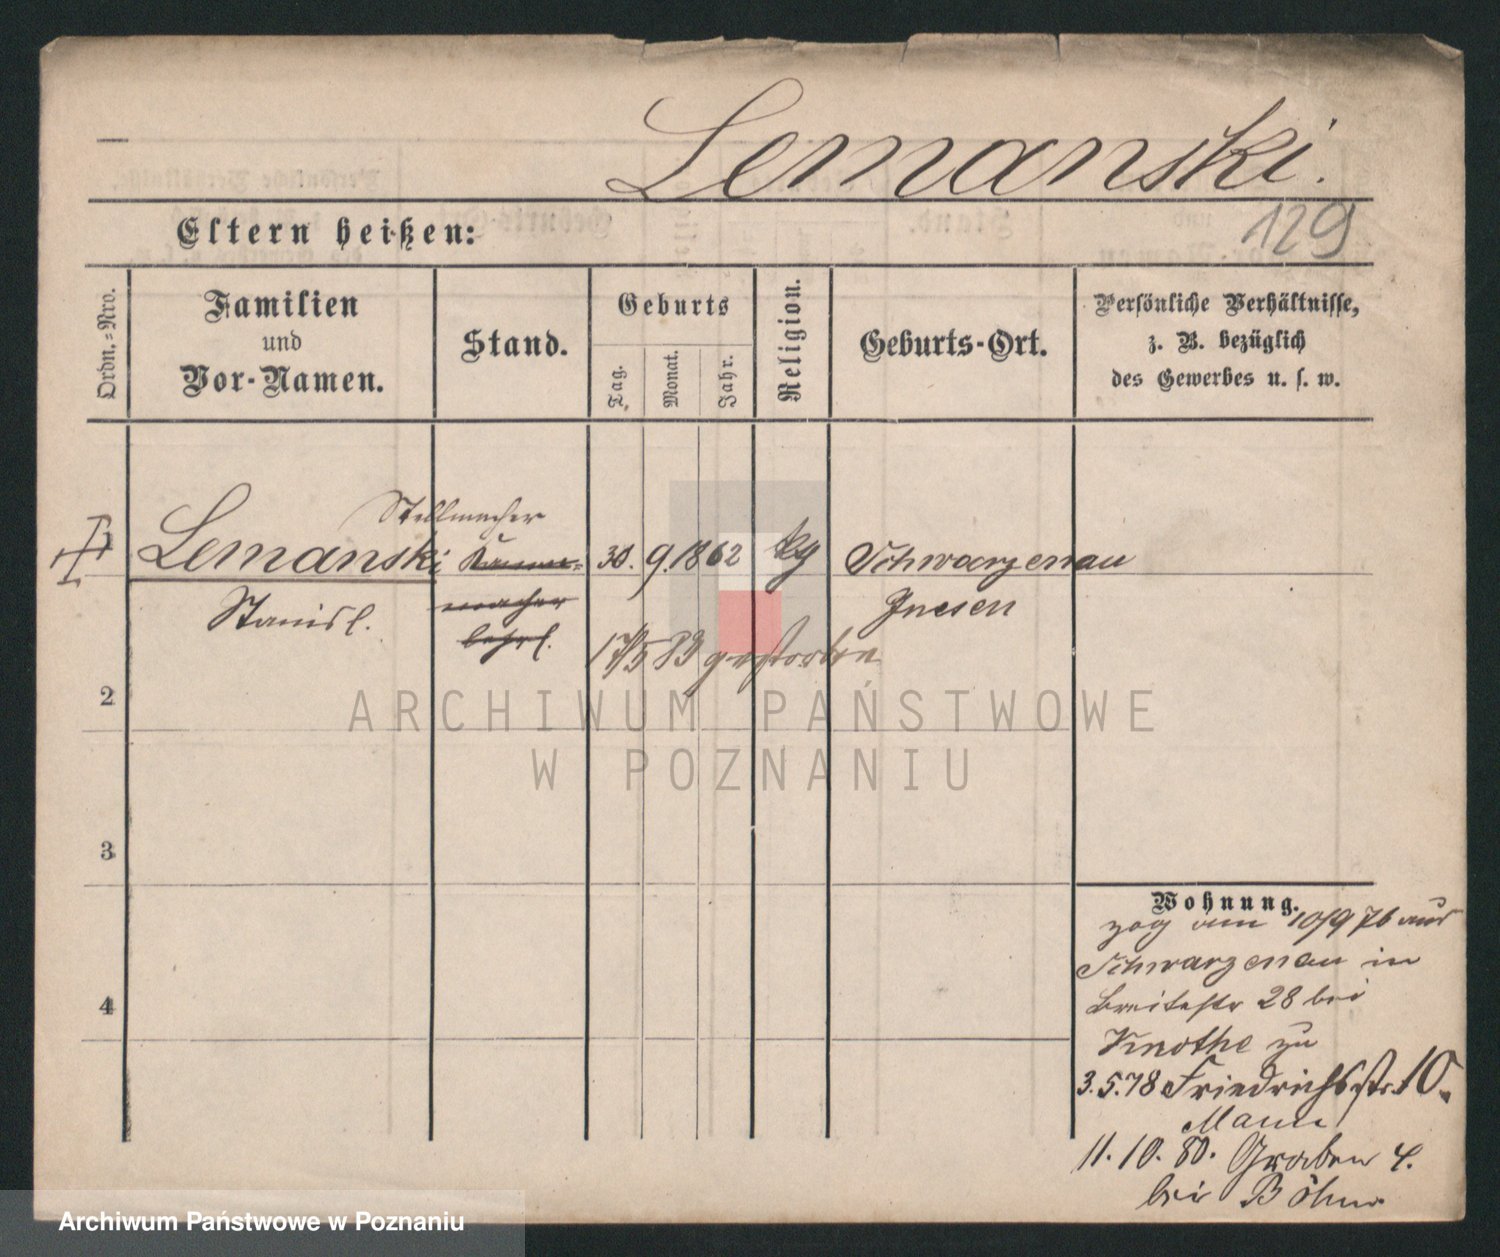 Lemanski.
129
Eltern heißen:
Ordn.-Nro.
Familien
und
Vor-Namen.
Stand.
Geburts
Tag.
Monat.
Jahr.
Religion.
Geburts-Ort.
Persönliche Verhältnisse,
z. B. bezüglich
des Gewerbes u. s. w.
Stellmacher
1 Lemanski 30. 9. 1862 kg Schwarzenau
Stanisl. macher Gnesen
lehrl.
17/5 83 gestorben
2
3
4
ARCHIWUM PAŃSTWOWE
W POZNANIU
Wohnung.
zog am 10/9 76 aus
Schwarzenau in
Breitestr 28 bei
Knothe zu
3.5.78 Friedrichsstr. 10.
Mann
11. 10. 80. Graben 4.
bei Böhm
Archiwum Państwowe w Poznaniu